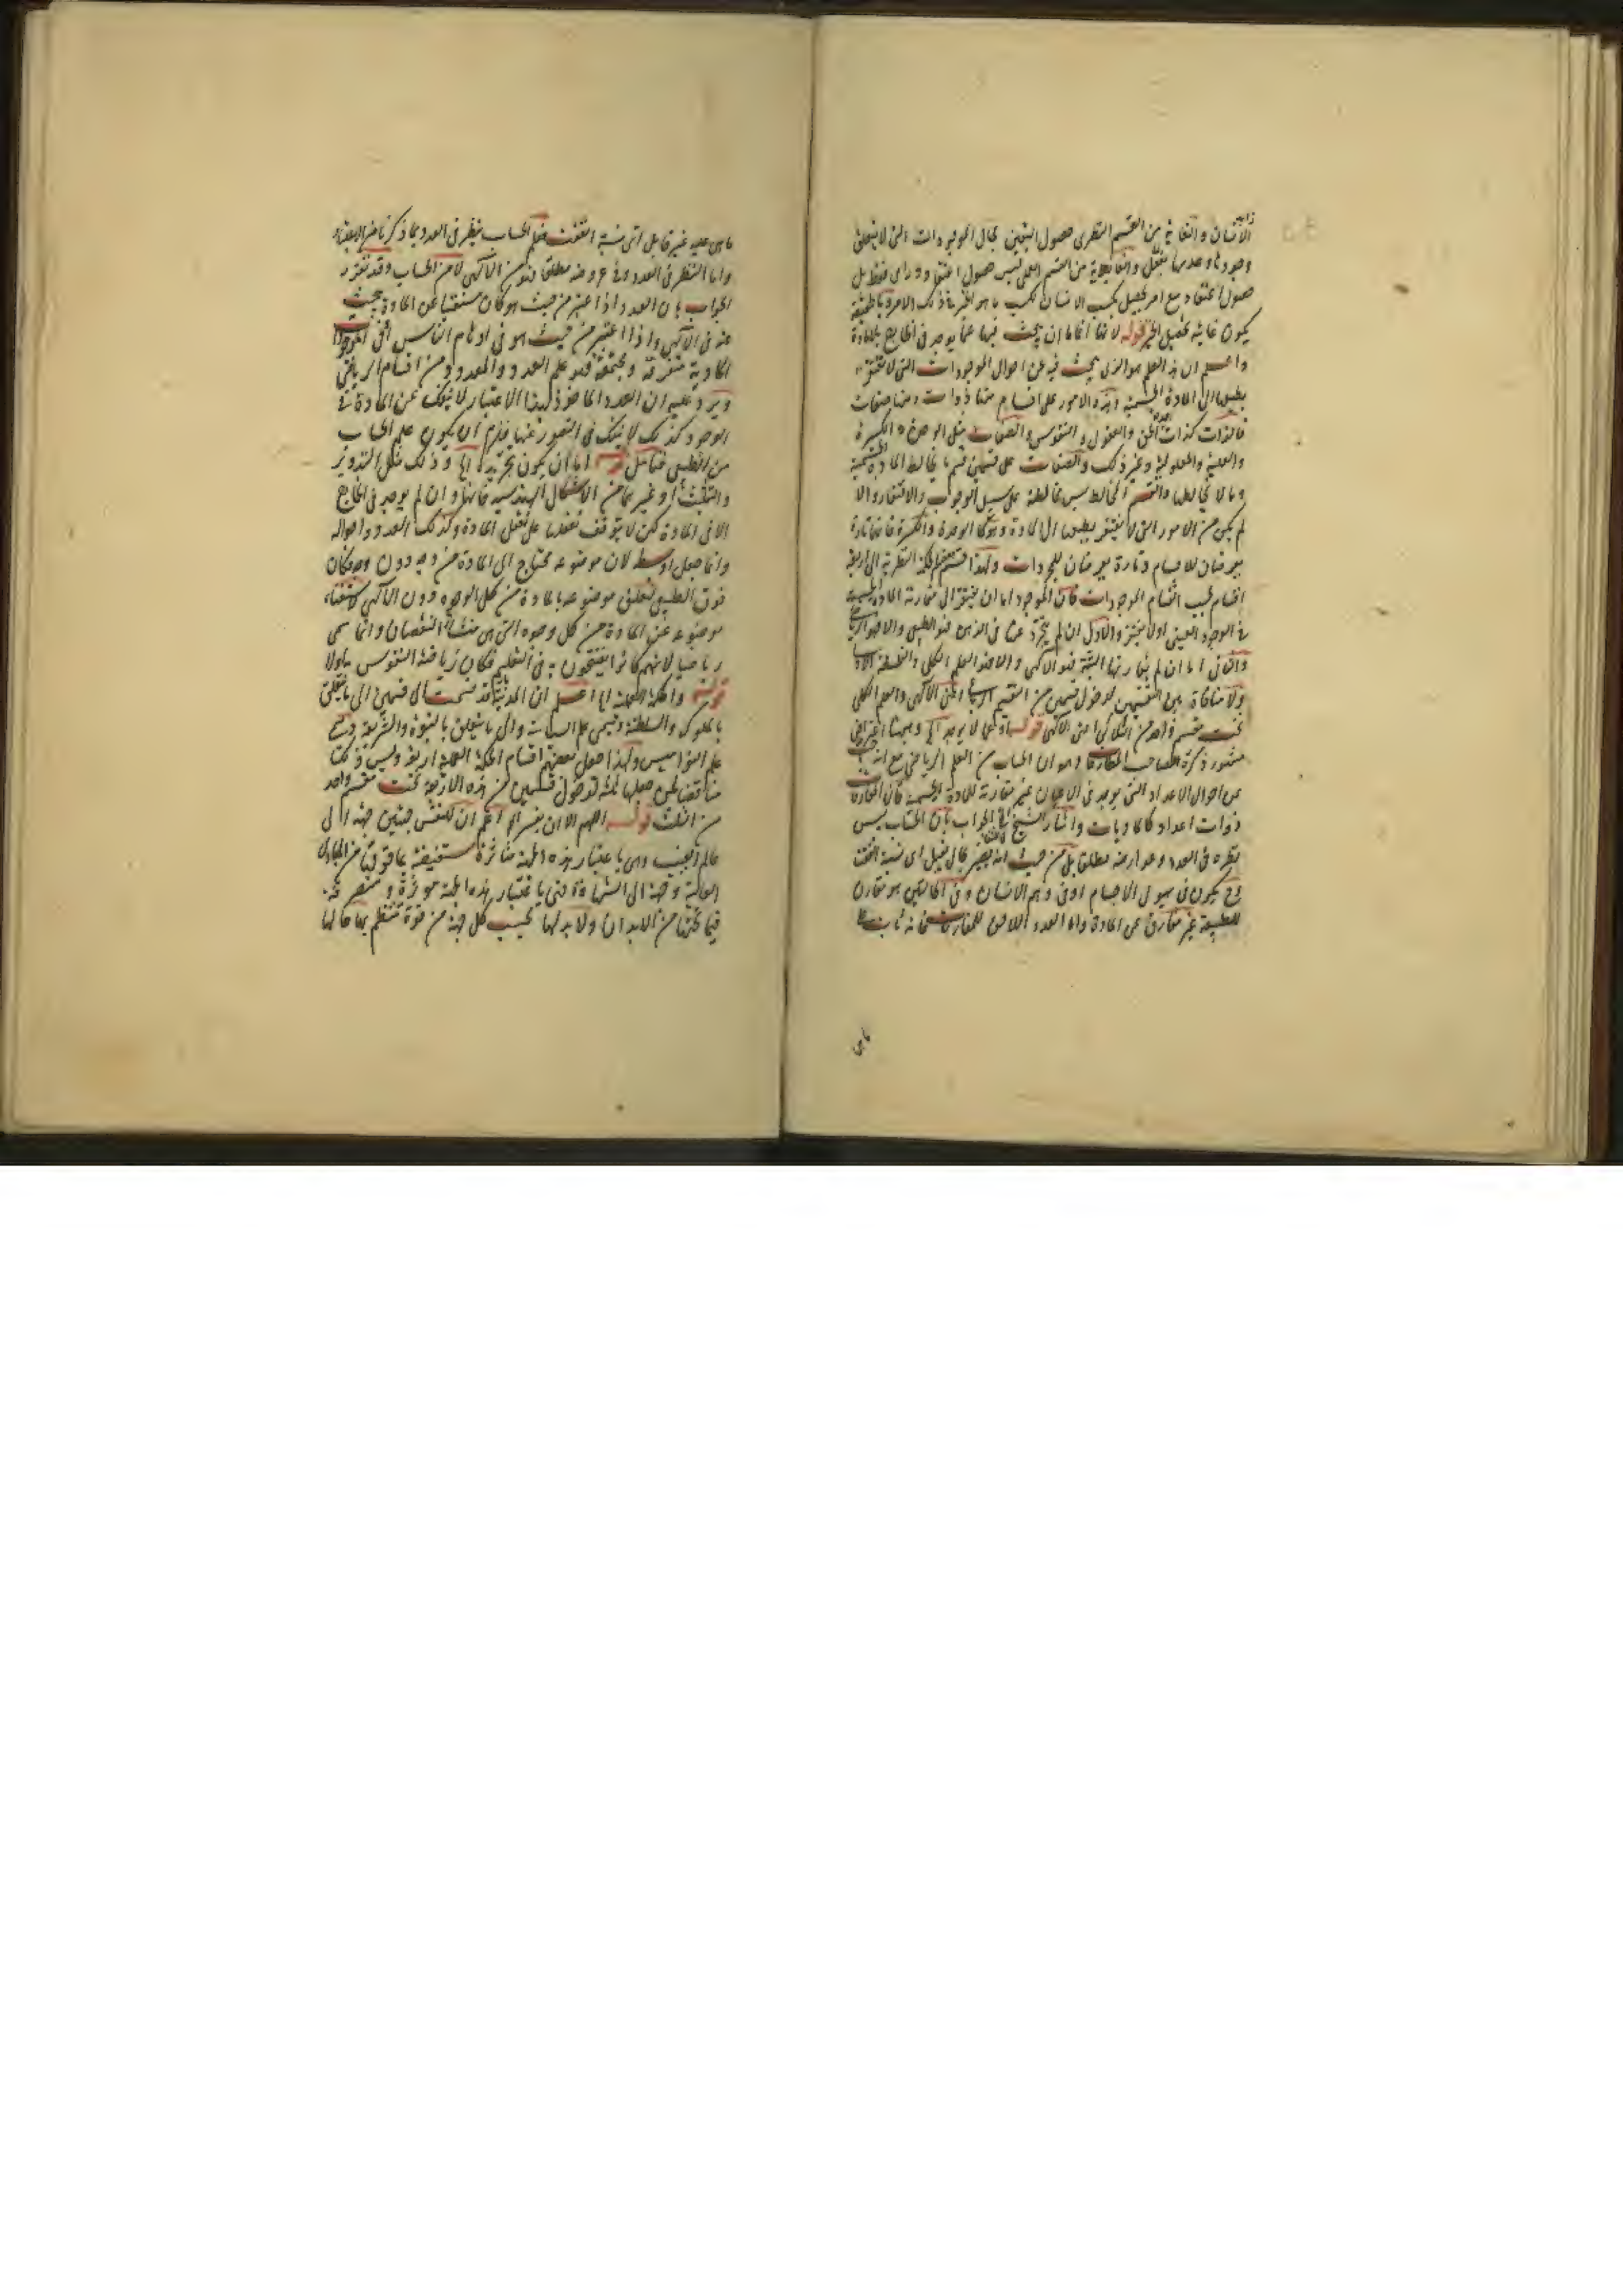 الانسان والغاية من القسم النظرى حصول اليقين بحال الموجودات التى لا يتعلق
وجودها وعدمها بفعل والغاية من القسم العملى ليس حصول اعتقاد وراى فقط بل
حصول اعتقاد مع امر يحصل بكسب الانسان ليكسب ما هو الخير
يكون غايته تحصيل الخير قوله لانها اما ان يبحث فيها عما يوجد فى الخارج بالمادة
واعلم ان هذا العلم هو الذى يبحث فيه عن احوال الموجودات التى لا تفتقر
الى المادة الجسمية وهذه الامور على اقسام منها ذوات ومنها صفات
فالذات كذات الحق والعقول والنفوس والصفات مثل الوحدة والكثرة
والعلية والمعلولية وغير ذلك والصفات على قسمين قسم يخالط المادة الجسمية
وما لا يخالطها والقسم المخالط ليس مخالطته على سبيل الوجوب والافتقار والا
لم يكن من الامور التى لا تفتقر الى المادة وهو كالوحدة والكثرة فانهما تارة
يعرضان للاجسام وتارة يعرضان للمجردات ولهذا قسم بعضهم الحكمة النظرية الى اربعة
اقسام بحسب اقسام الموجودات فان الموجود اما ان يفتقر الى مقارنة المادة الجسمية
فى الوجود العينى اولا يفتقر والاول ان لم يتجرد عنها فى الذهن فهو الطبيعى والا فهو الرياضى
والثانى اما ان لم يقارنها البتة فهو الالهى والا فهو العلم الكلى والفلسفة الاولى
ولا منافاة بين التقسيمين لدخول قسمين من التقسيم الرباعى اعنى الالهى والعلم الكلى
تحت قسم واحد من الثلاثى اعنى الالهى قوله اولى لا يوجد الخ وههنا اعتراض
مشهور ذكره صاحب المطارحات وهو ان الحساب من العلم الرياضى مع انه يبحث
عن احوال الاعداد التى يوجد فى الاعيان غير مقارنة للمادة الجسمية فان المفارقات
ذوات اعداد كالماديات واشار الشيخ الى الجواب بان الحساب ليس
نظره فى العدد وعوارضه مطلقا بل من حيث انه يصير بحال يقبل اى نسبة اتفقت
وح يكون فى هيولى الاجسام او فى وهم الانسان وفى الحالتين هو مقارن
للطبيعة غير مفارق عن المادة واما العدد اللاحق للمفارقات فانه ثابت
ما هى
ما هى عليه غير قابل اى نسبة اتفقت فعلم الحساب ينظر فى العدد بما ذكرنا من الاعتبار
واما النظر فى العدد وفى عروضه مطلقا فهو من الالهى لا من الحساب وقد تقرر
الجواب بان العدد اذا اعتبر من حيث هو كان مستغنيا عن المادة يبحث
عنه فى الالهى واذا اعتبر من حيث هو فى اوهام الناس او فى الموجودات
المادية متفرقة ومجتمعة فهو علم العدد والمعدود من اقسام الرياضى
ويرد عليه ان العدد الماخوذ بهذا الاعتبار لا ينفك عن المادة فى
الوجود كذلك لا ينفك فى التصور عنها فيلزم ان يكون علم الحساب
من الطبيعى فتامل قوله اما ان يكون تجريدها الخ وذلك مثل التدوير
والتثليث وغيرها من الاشكال الهندسية فانها وان لم يوجد فى الخارج
الا فى المادة لكن لا يتوقف تعقلها على تعقل المادة وكذلك العدد واحواله
وانما جعل اوسط لان موضوعه يحتاج الى المادة من وجه دون وجه فكان
فوق الطبيعى لتعلق موضوعه بالمادة من كل الوجوه ودون الالهى لاستغناء
موضوعه عن المادة من كل وجوه التى هى منشا النقصان وانما سمى
رياضيا لانهم كانوا يفتتحون به فى التعليم فكان رياضة النفوس به اولا
قوله والحكمة العملية الخ اعلم ان المدنية قد قسمت الى قسمين الى ما يتعلق
بالملوك والسلطنة ويسمى علم السياسات والى ما يتعلق بالنبوة والشريعة ويسمى
علم النواميس ولهذا جعل بعضهم اقسام الحكمة العملية اربعة وليس ذلك
مناقضا لمن جعلها ثلثة لدخول قسمين من هذه الاربعة تحت قسم واحد
من الثلث قوله اللهم الا ان يفسر الخ اعلم ان للنفس جهتين جهة الى
عالم الغيب وهى باعتبار هذه الجهة متاثرة مستفيضة عما فوقها من المبادى
العالية وجهة الى الشهادة وهى باعتبار هذه الجهة موثرة ومتصرفة
فيما تحتها من الابدان ولا بد لها بحسب كل جهة من قوة تنتظم بها حالها